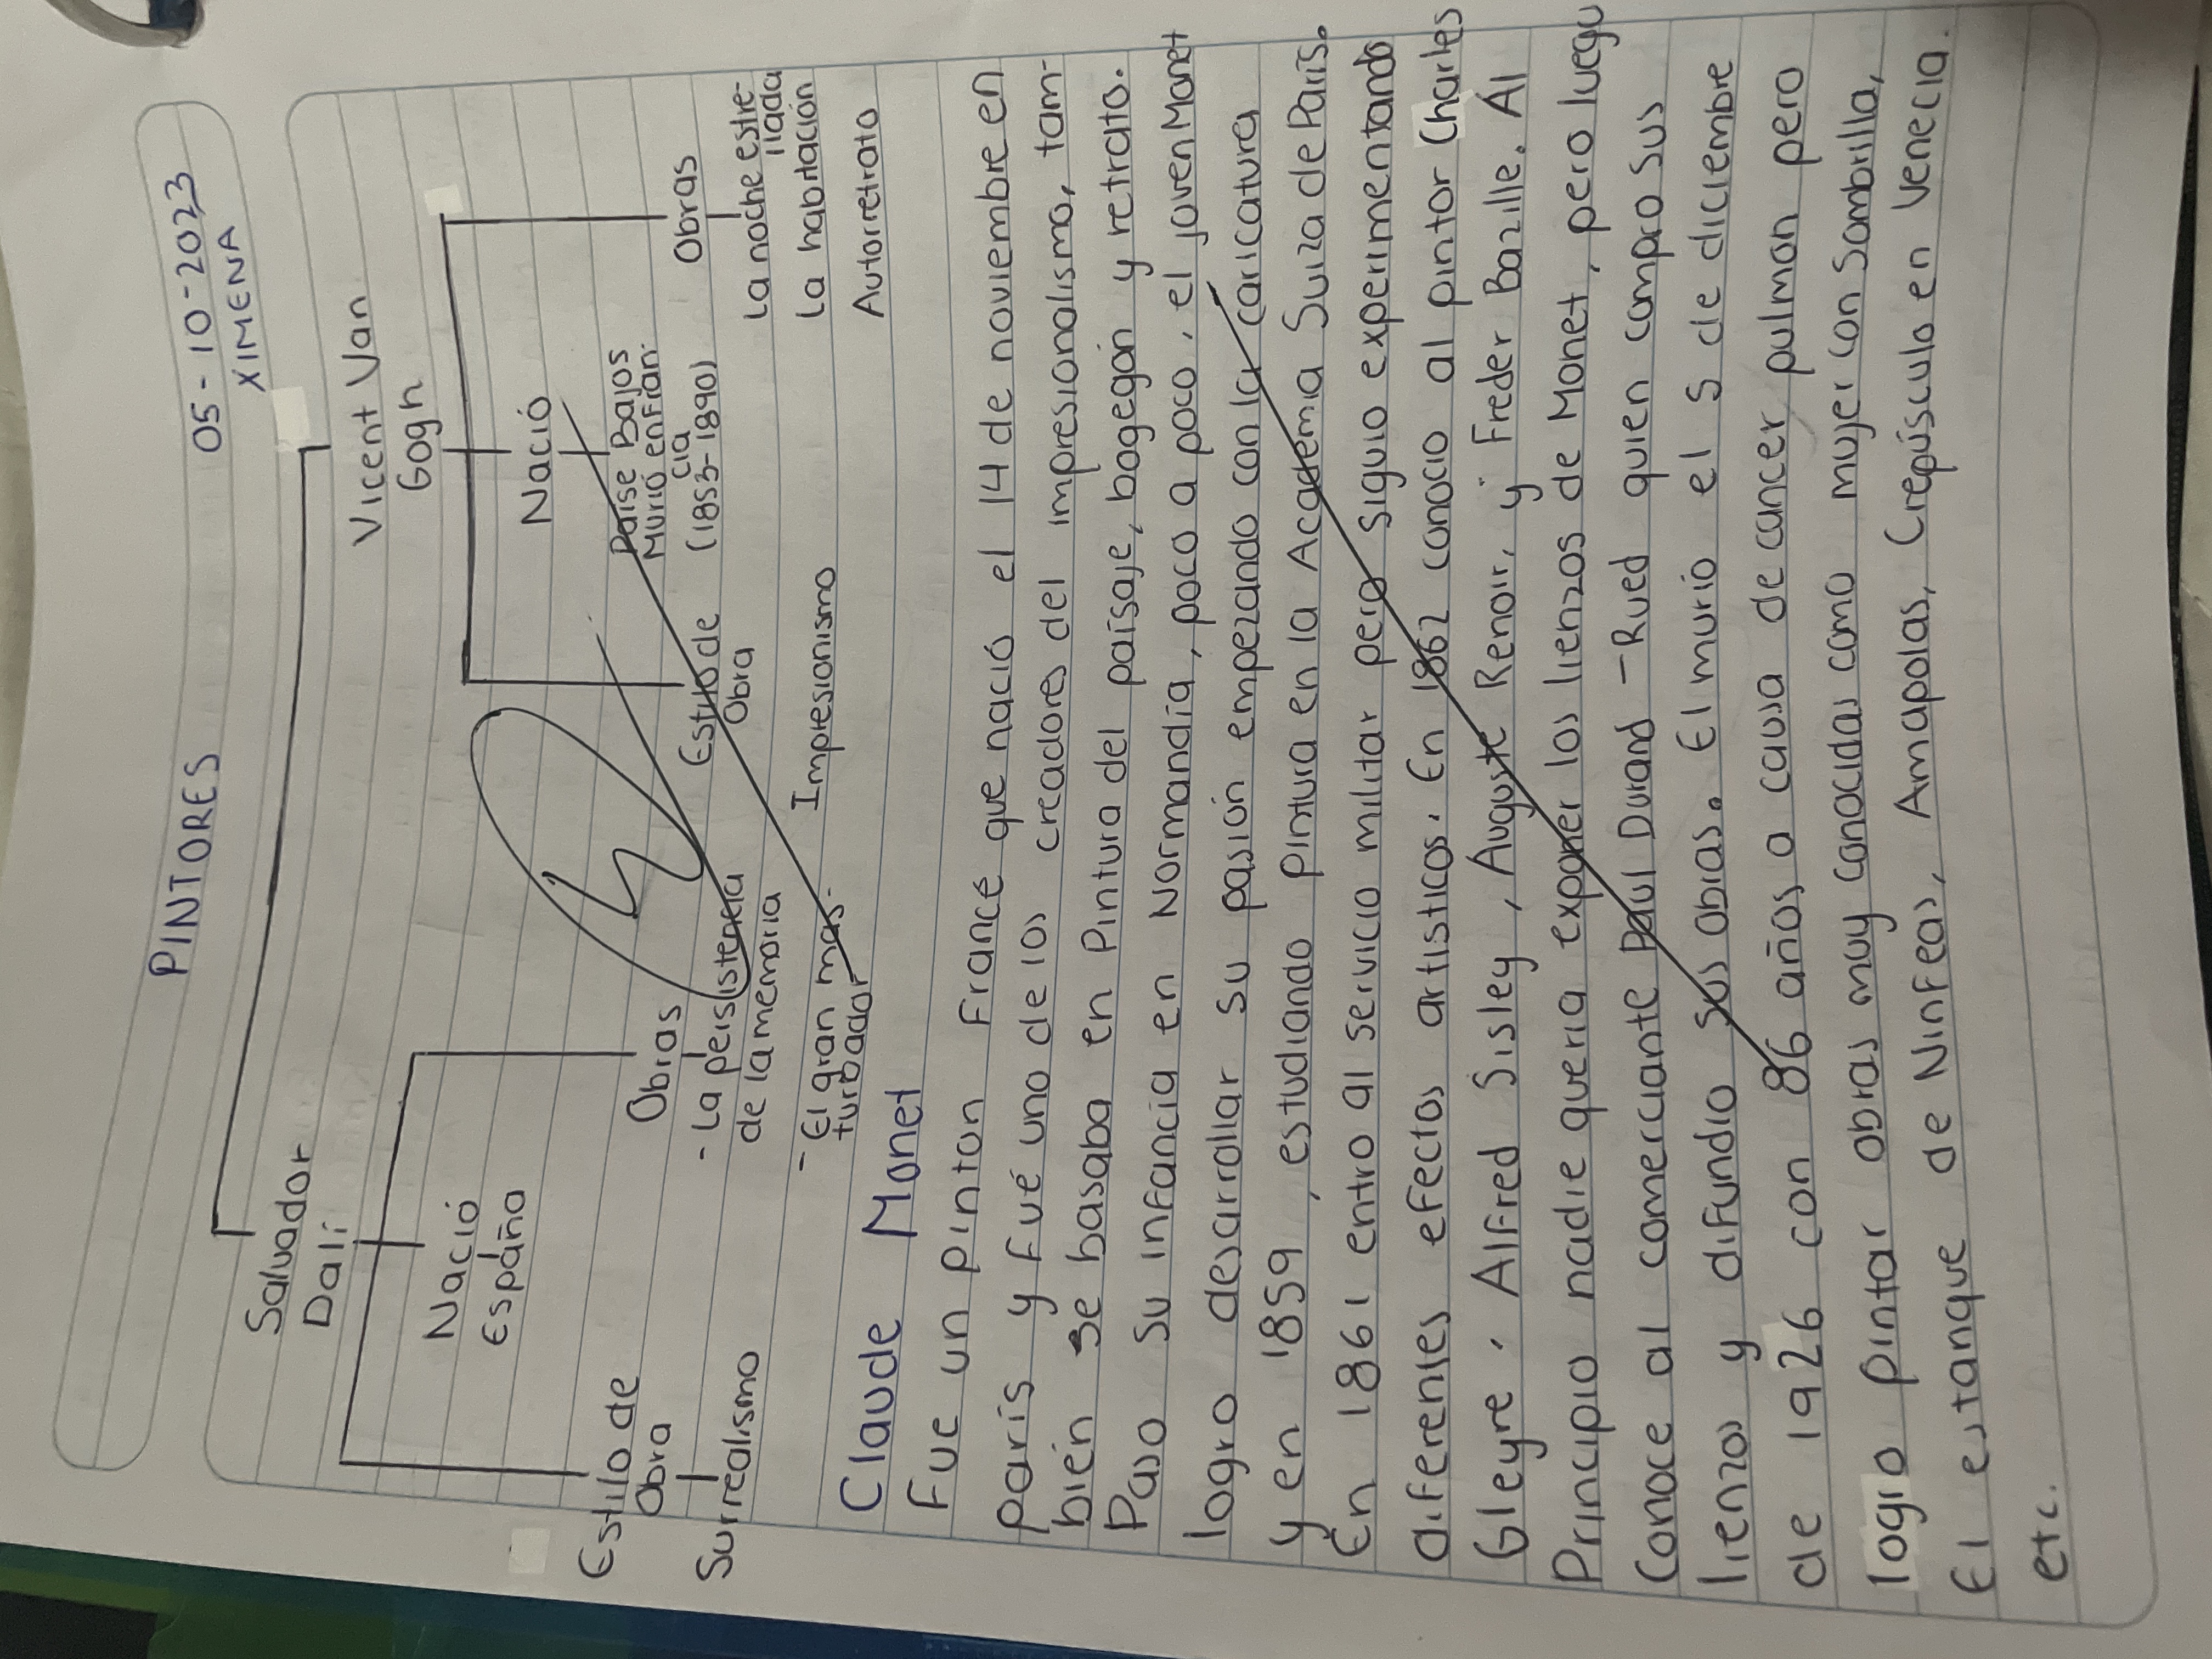 PINTORES
05-10-2023
XIMENA
Salvador
Dalí
Nació
España
Estilo de
Obra
Surrealismo
Obras
- La persistencia
de la memoria
- El gran mas-
turbador
Vicent Van
Gogh
Nació
Paise Bajos
Murió en Fran-
cia
(1853-1890)
Estilo de
Obra
Impresionismo
Obras
La noche estre-
llada
La habitación
Autorretrato
Claude Monet
Fue un pinton Francé que nació el 14 de noviembre en
parís y fué uno de los creadores del impresionalismo, tam-
bién se basaba en Pintura del paísaje, bogegón y retrato.
Paso su infancia en Normandía, poco a poco, el joven Monet
logro desarrollar su pasión empezando con la caricatura
y en 1859, estudiando pintura en la Academia Suiza de París.
En 1861 entro al servicio militar pero siguio experimentando
diferentes efectos artisticos. En 1862 conocio al pintor Charles
Gleyre, Alfred Sisley, Auguste Renoir, y Freder Bazille. Al
Principio nadie queria exponer los lienzos de Monet, pero luego
Conoce al comerciante Paul Durand-Rued quien compro sus
lienzos y difundio sus obras. El murio el 5 de diciembre
de 1926 con 86 años a causa de cancer pulmon pero
logro pintar obras muy conocidas como mujer con Sombrilla,
El estanque de Ninfeas, Amapolas, Crepúsculo en Venecia.
etc.